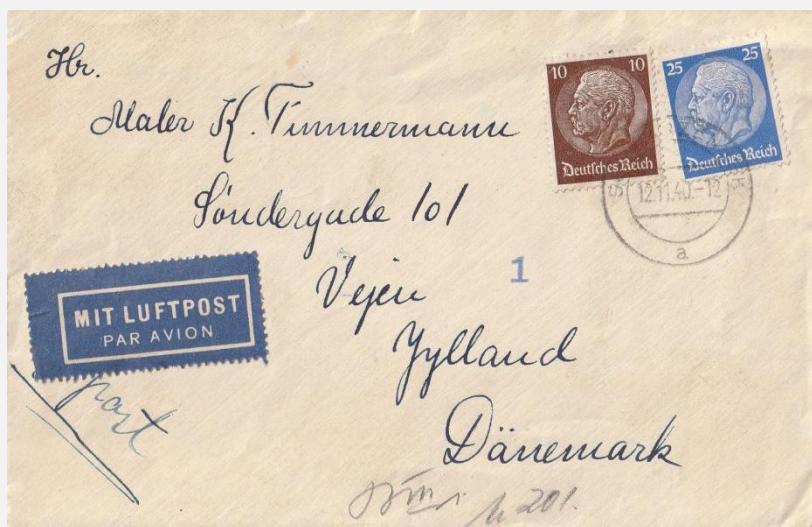 Hr.
Maler K. Timmermann
Söndergade 101
Vejen
Jylland
Dänemark
10 10
Deutsches Reich
25 25
Deutsches Reich
12.11.40.-12
a
1
MIT LUFTPOST
PAR AVION
post
201.